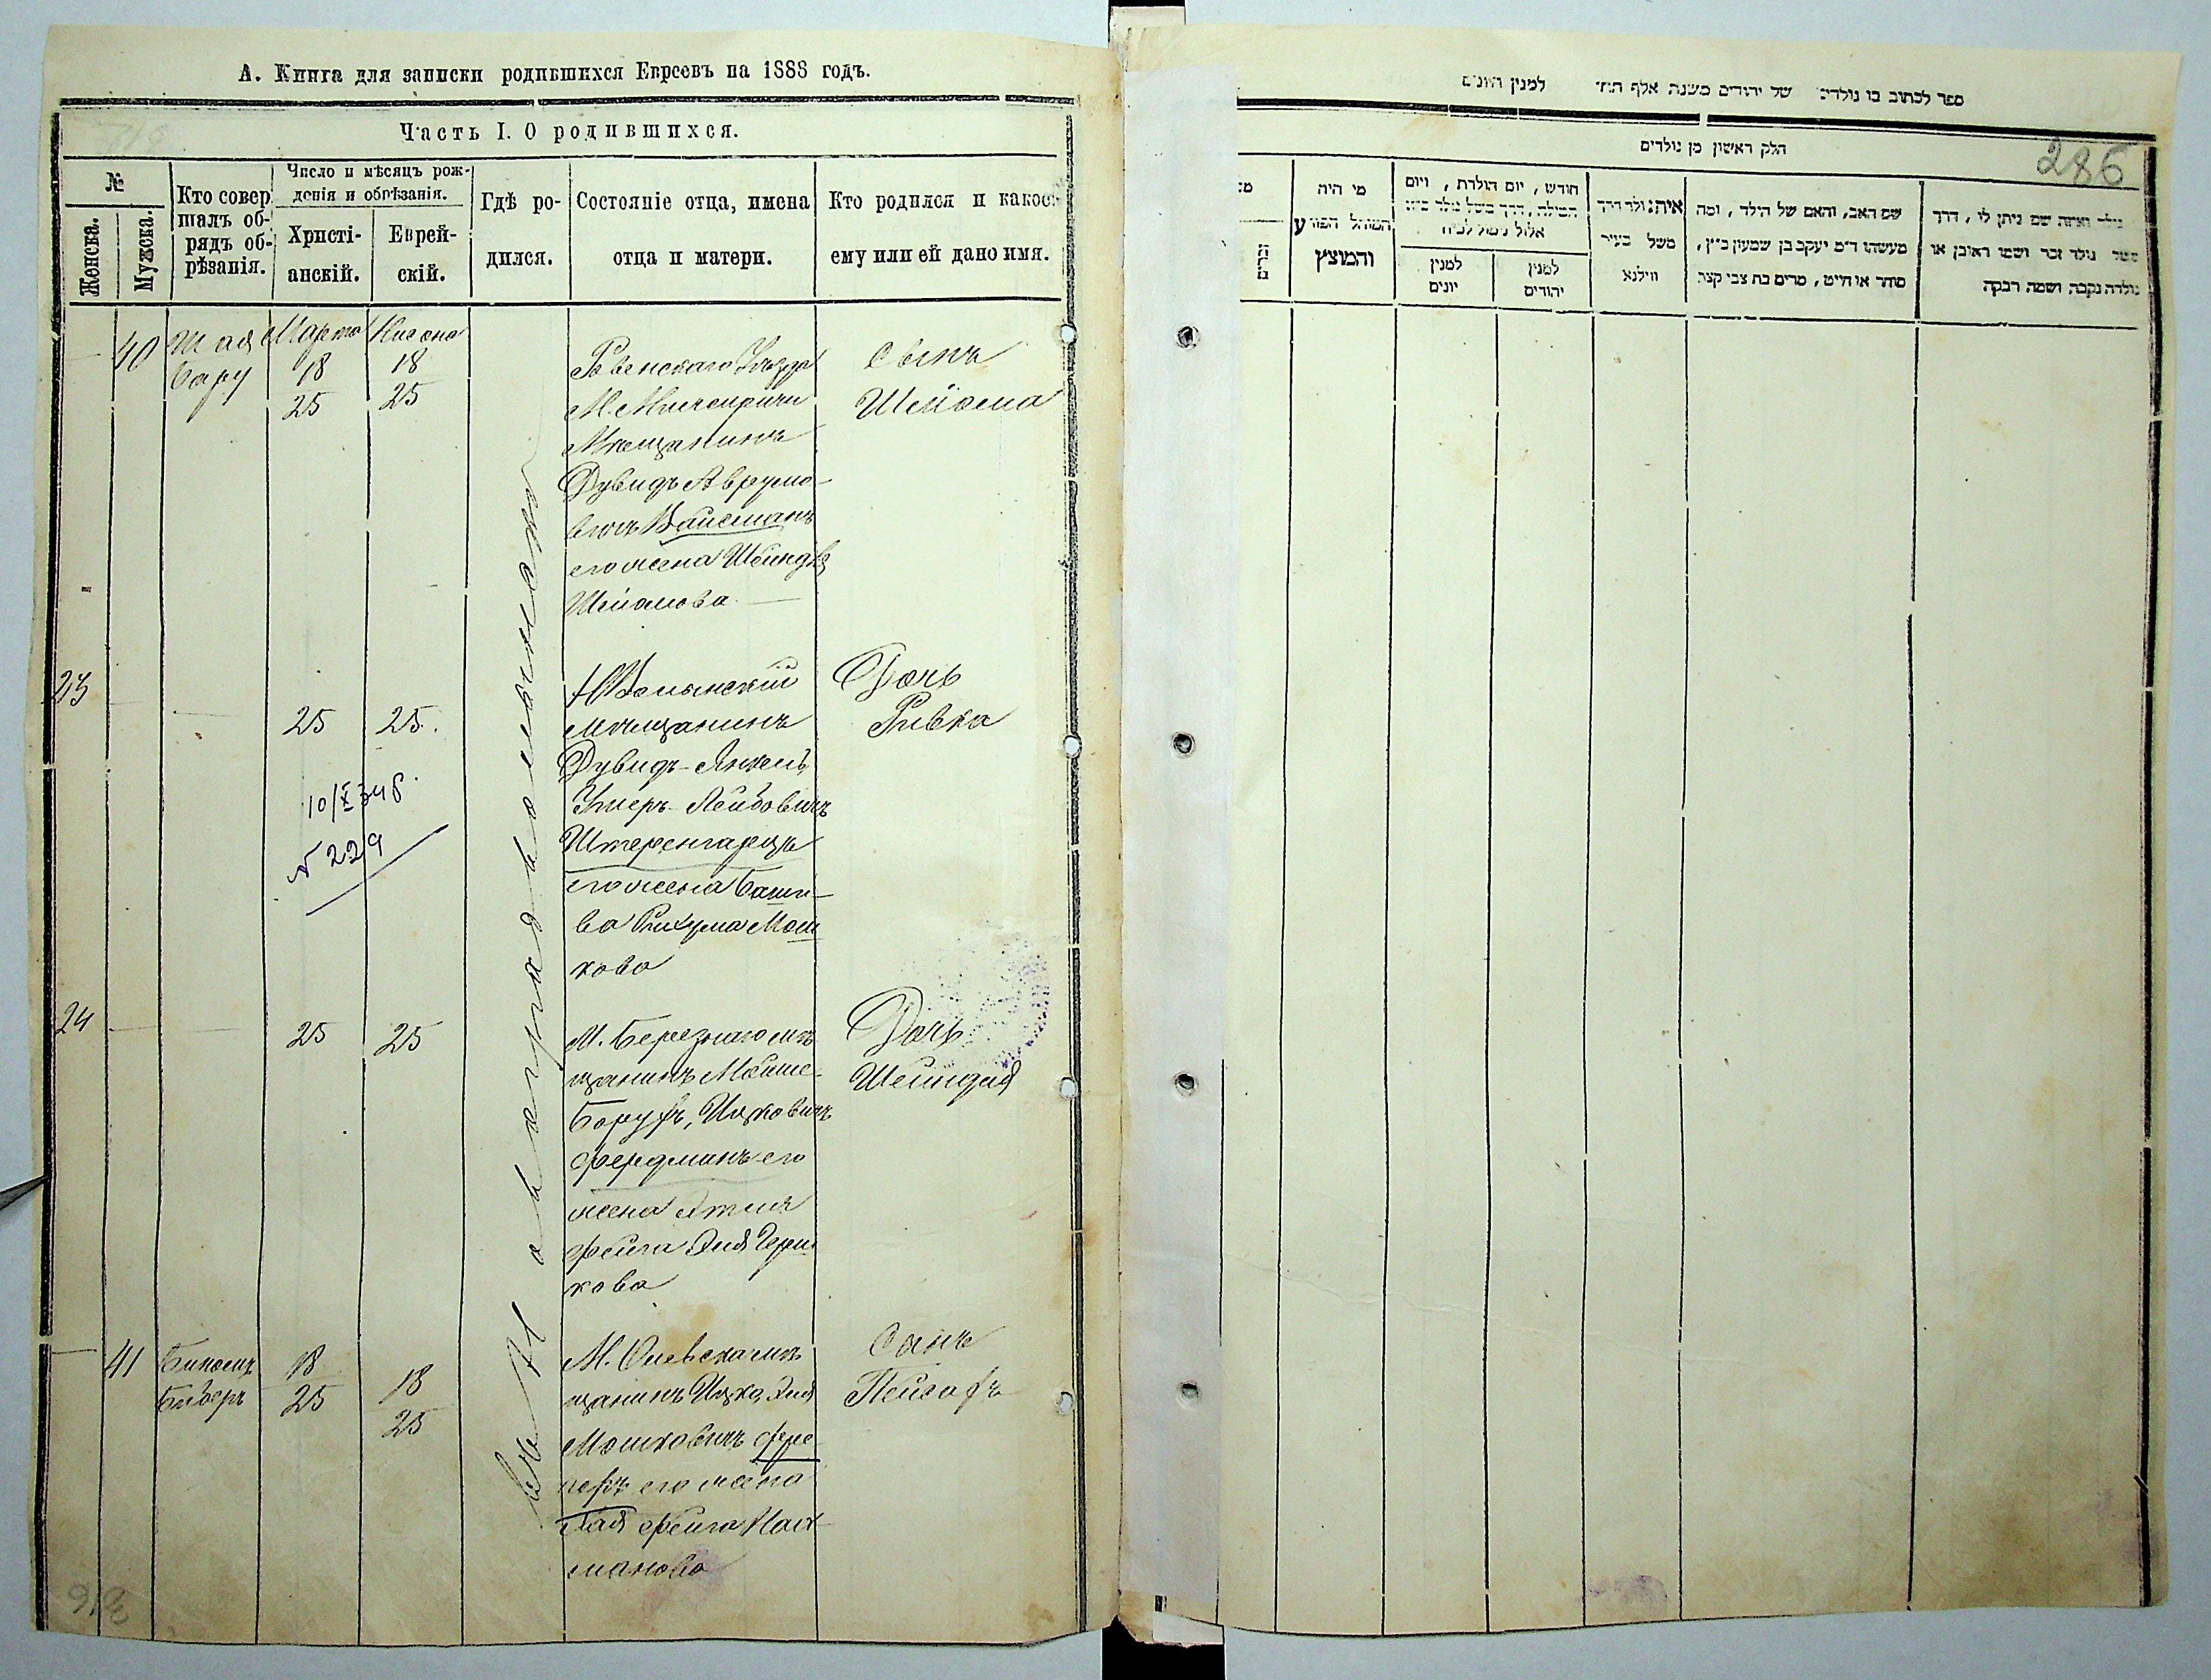 А. Книга для записки родившихся Евреевъ на 1888 годъ.
Часть I. О родившихся.
№
Женска.
Мужска.
Кто совер
шалъ об-
рядъ об-
рѣзанія.
Число и мѣсяцъ рож-
денія и обрѣзанія.
Христі-
анскій.
Еврей-
скій.
Гдѣ ро-
дился.
Состояніе отца, имена
отца и матери.
Кто родился и какое
ему или ей дано имя.
40
Шая
Бару
Марта
18
25
Нисона
18
25
Ровенскаго Уѣзда
М. Межиричи
Мѣщанинъ
Дувидъ Аврумо-
вичъ Вайсманъ
его жена Шейндя
Шеиомова
Сынъ
Шеиома
23
25
25.
10/X 348
№ 229
мѣщанинъ
Дувидъ-Янкель,
Лейбовичъ
Штеренгарцъ
его жена Баши-
ва Рихума Мош
кова
Дочь
Ривка
24
25
25
М. Березнаго мѣ
щанинъ Мойше-
Борухъ, Ицковичъ
Фердманъ его
жена
Фейга Эля Герш
кова
Дочь
Шейндля
41
Биномъ
Биберъ
18
25
18
25
М. Олевска мѣ
щанинъ Ицко, Эля
Мошковичъ
его жена
Фейга Нах
манова
Сынъ
Пейсахъ
въ
ספר לכתוב בו נולדים של יהודים משנת אלף תתי למנין היונים
חלק ראשון מן נולדים
286
מי היה
המוהל הפורע
והמוצץ
חודש, יום הולדת, ויום
למנין
יונים
למנין
יהודים
משל בעיר
ווילנא
שם האב, והאם של הילד, ומה
מעשהו ד״מ יעקב בן שמעון כ״ץ,
סוחר או חייט, מרים בת צבי קצר
נולד ואיזה שם ניתן לו, דרך
משל נולד זכר ושמו ראובן או
נולדה נקבה ושמה רבקה